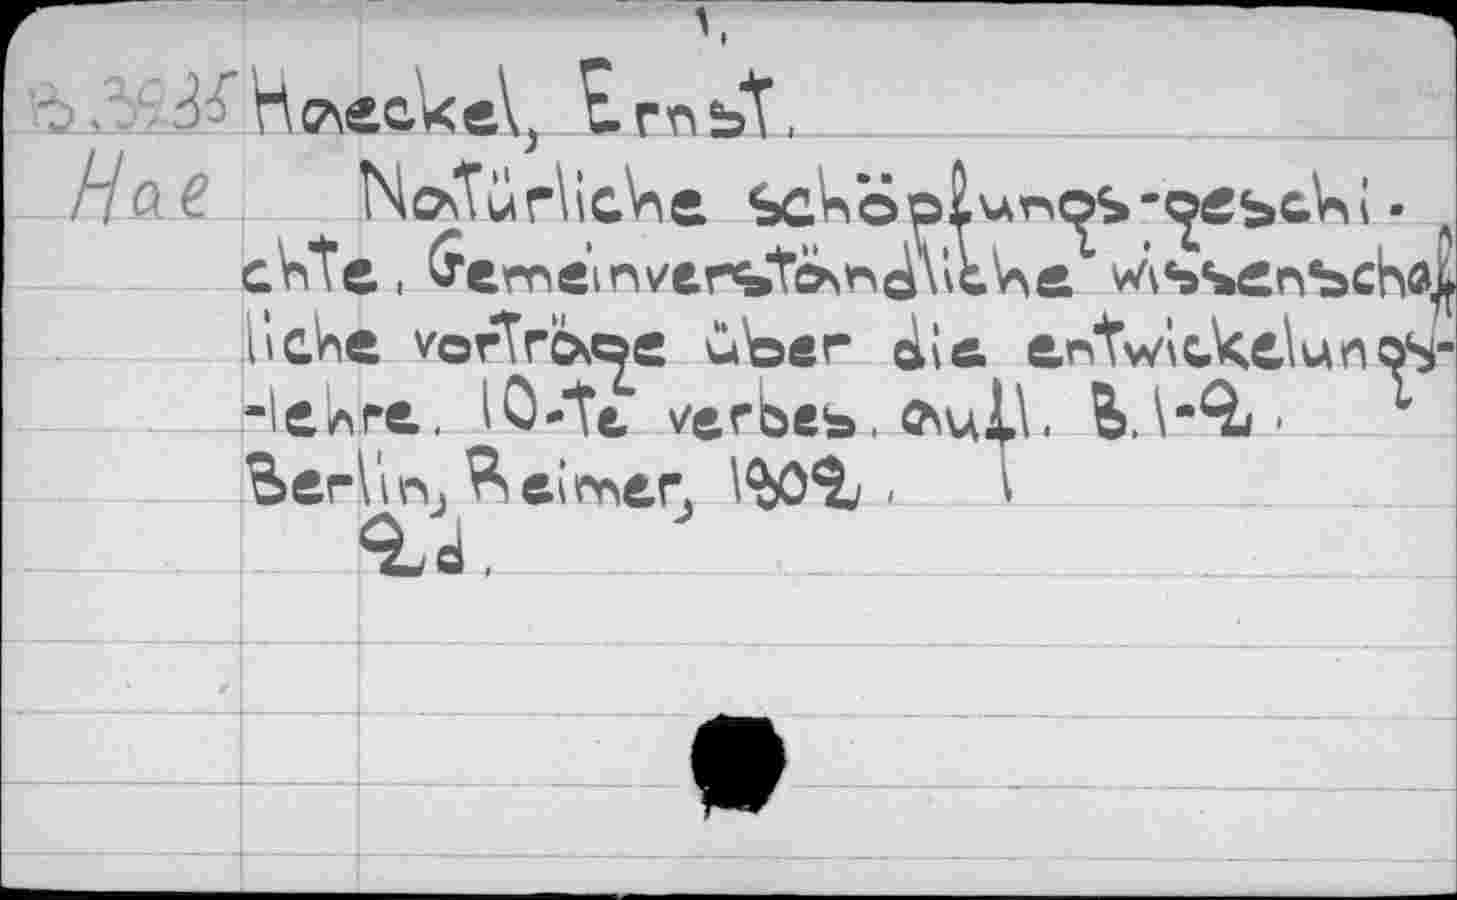 Haeckel, Ernst.
Hae Natürliche schöpfungs-geschi-
chte. Gemeinverständlikhe wissenschaf
liche vorträge über die entwickelungs-
-lehre. 10-te verbes. aufl. B.1-2.
Berlin, Reimer, 1902.
2d.